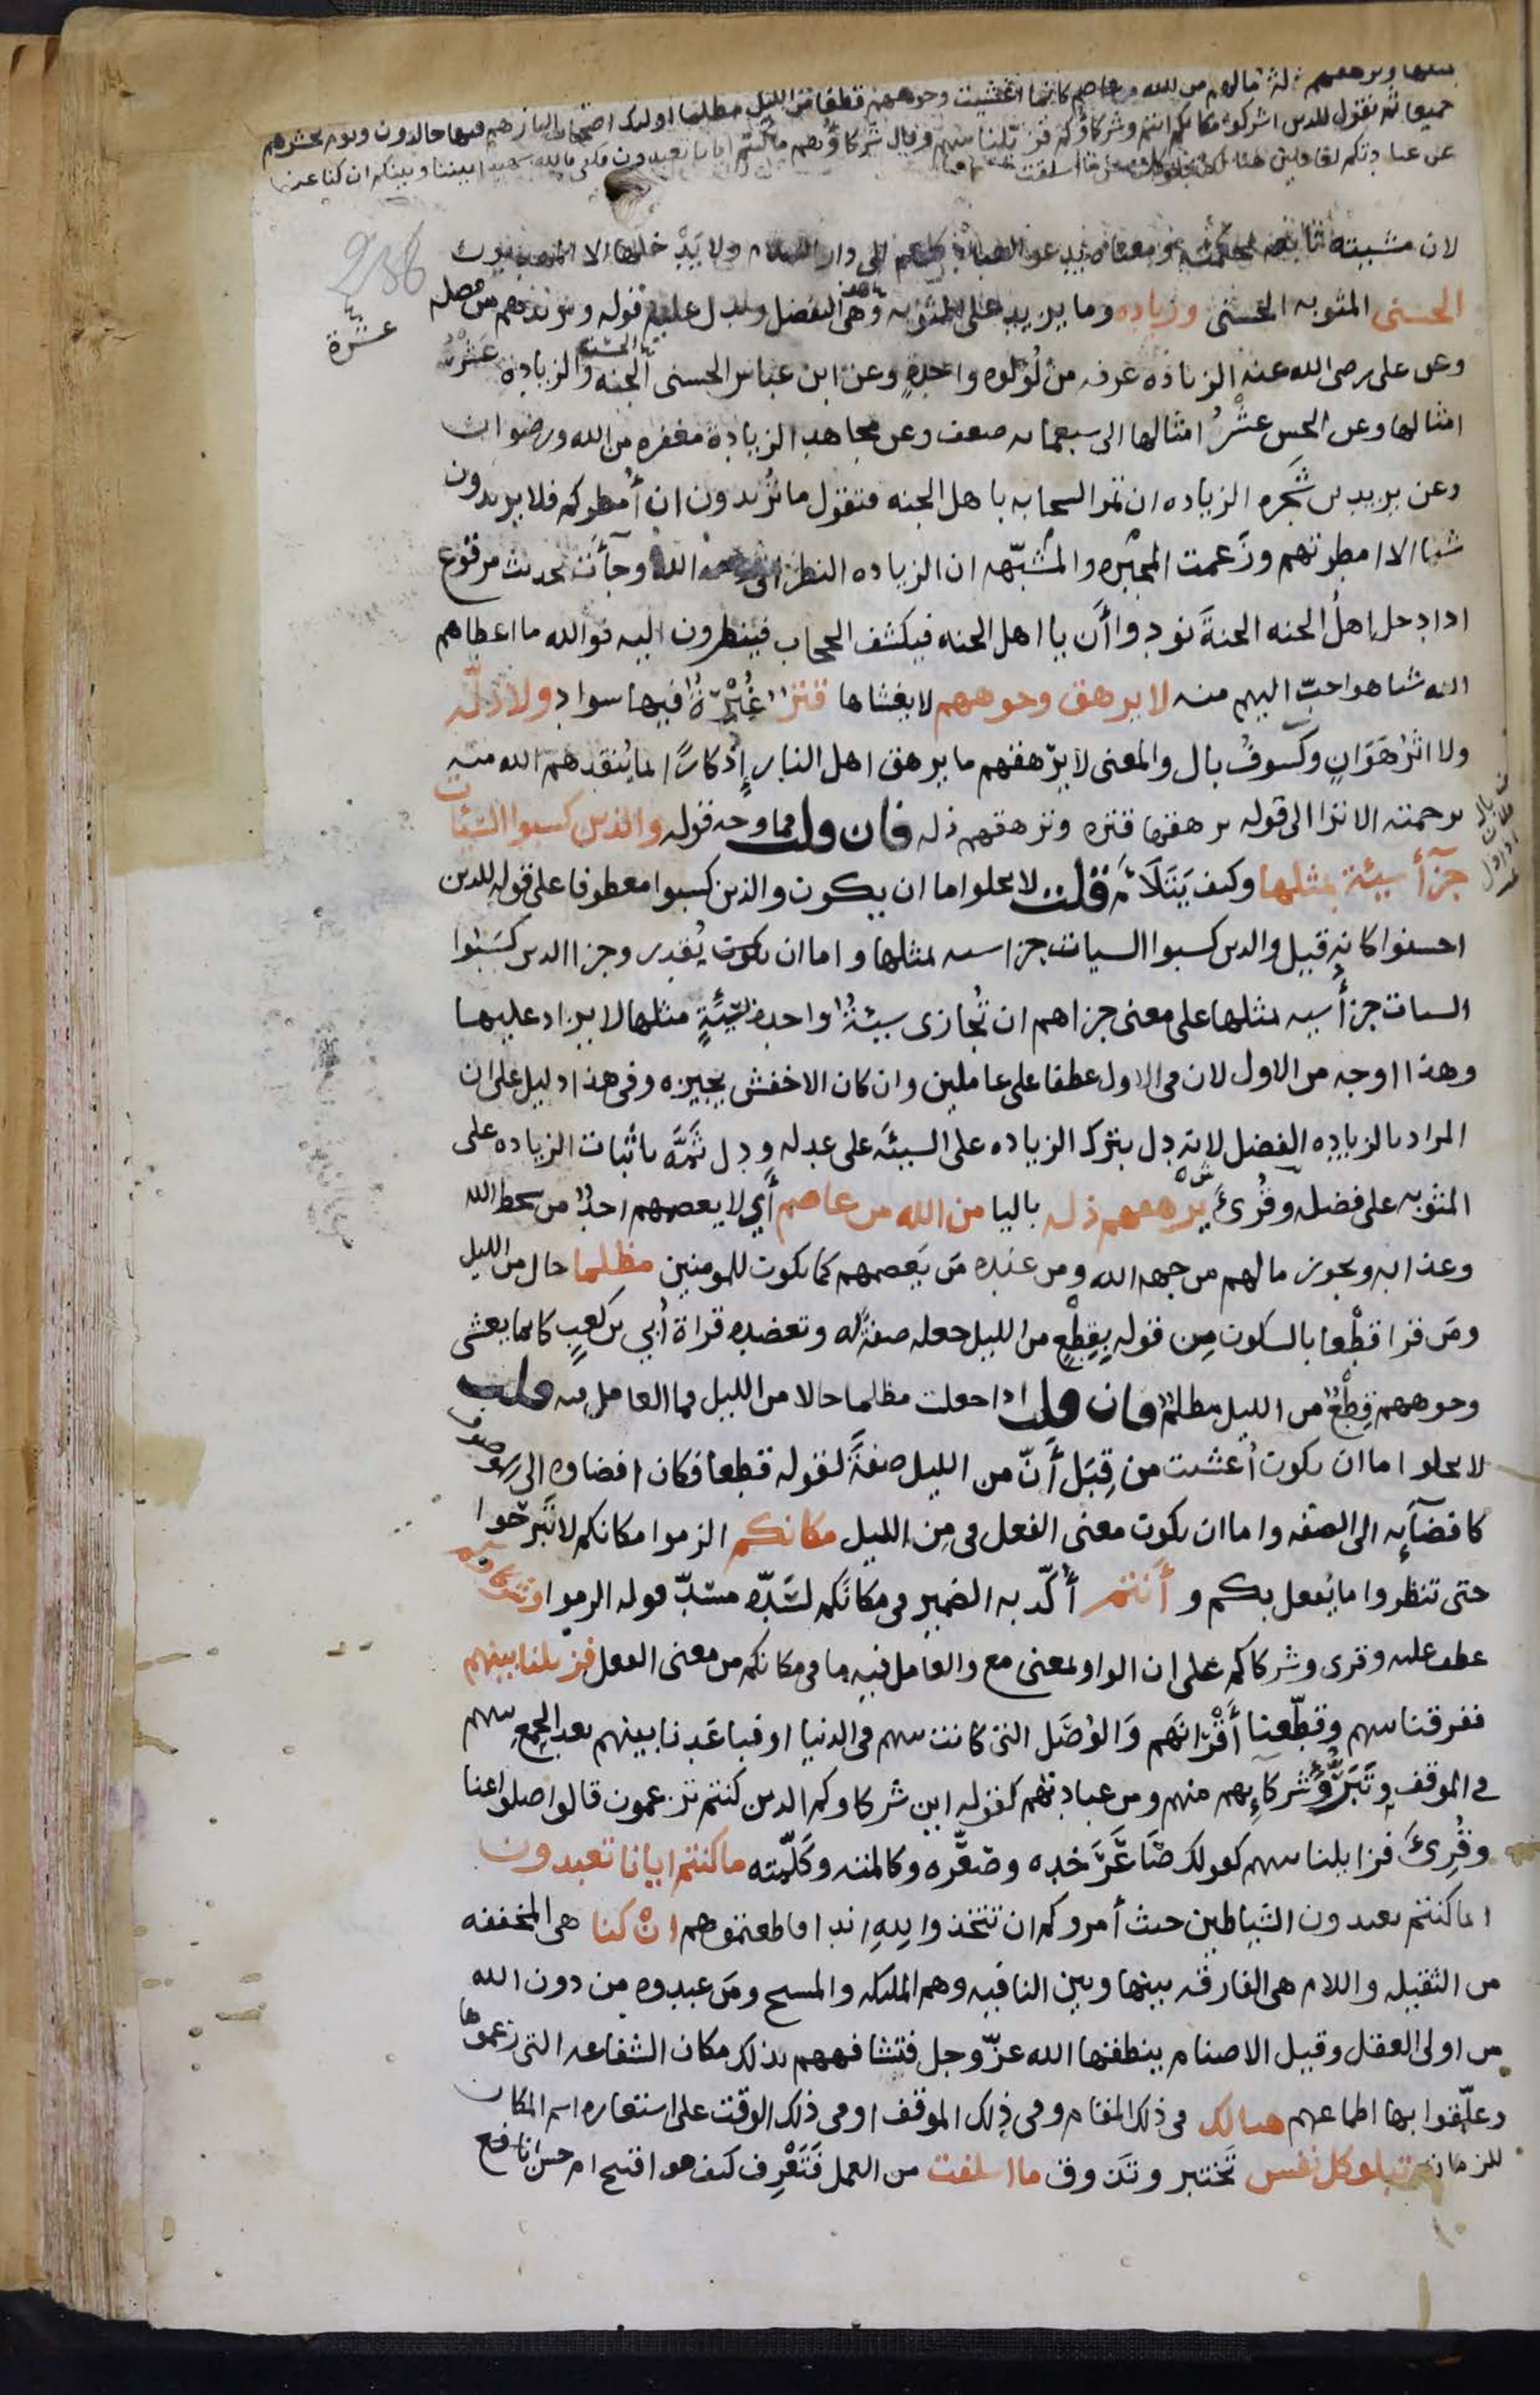 بمثلها وترهقهم ذلة ما لهم من الله من عاصم كانما اغشيت وجوههم قطعا من الليل مظلما اولئك اصحاب النار هم فيها خالدون ويوم نحشرهم
جميعا ثم نقول للذين اشركوا مكانكم انتم وشركاؤكم فزيلنا بينهم وقال شركاؤهم ما كنتم ايانا تعبدون فكفى بالله شهيدا بيننا وبينكم ان كنا عن
عبادتكم لغافلين هنالك تبلوا كل نفس ما اسلفت
238
لان مشيته تابعة لحكمته ومعناه يدعو العباد كلهم الى دار السلام ولا يدخلها الا المهديون
الحسنى المثوبه الحسنى وزياده وما يزيد على المثوبه وهى التفضل ويدل عليه قوله ويزيدهم من فضله
وعن على رضى الله عنه الزيادة غرفه من لؤلوه واحدةٍ وعن ابن عباس الحسنى الجنه والزيادة عَشْرُ
عشرة
امثالها وعن الحسن عشْرُ امثالها الى سبعمايه ضعف وعن مجاهد الزيادة مغفره من الله ورضوان
وعن يزيد بن شَجَره الزياده ان تمر السحابه باهل الجنه فتقول ما تُريدون ان أُمطركم فلا يريدون
شيا الا امطرتهم وزَعمت المجبره والمشبّهه ان الزياده النظر الى وجه الله وجآَت بحديث مرقوع
اذا دخل اهلُ الجنه الجنةَ نودوا أَن يا اهل الجنه فيكشف الحجاب فينظرون اليه فوالله ما اعطاهم
الله شيا هو احبّ اليهم منه لا يرهق وجوههم لا يغشاها قتر غُبْرَةٌ فيها سواد ولا ذلّه
ولا اثرُ هَوَانٍ وكسوفُ بال والمعنى لا يرْهقهم ما يرهق اهل النار إِذْكارًا لما يُنقذهم الله منه
برحمته الا ترا الى قوله ترهقها قتره وترهقهم ذله فان قلت فما وجه قوله والذين كسبوا السيّئات
جزآءُ سيئة بمثلها وكيف يَتَلَأَم قلت لا يخلوا اما ان يكون والذين كسبوا معطوفا على قوله للذين
احسنوا كانه قيل وللذين كسبوا السيات جزا سيه بمثلها واما ان يكون يُقدر وجزا الذين كسَبُوا
السيات جزأُ سيه بمثلها على معنى جزاهم ان تُجازى سيئةٌ واحدة بسَيِّئَةٍ مثلها لا يزاد عليها
وهذا اوجه من الاول لان فى الاول عطفا على عاملين وان كان الاخفش يجيزه وفى هذا دليل على ان
المراد بالزياده الفضل لانه دل بترك الزياده على السيئَه على عدله ودل ثَمَّهَ باثبات الزياده على
المثوبه على فضله وقُرئَ يرْهقهم ذله باليا من الله من عاصم أَي لا يعصمهم احدٌ من سخط الله
وعذابه ويجوز مالهم من جهه الله ومن عنده مَن يَعصمهم كما يكون للمومنين مظلما حال من الليل
ومَن قرا قطْعا بالسكون مِن قوله بِقِطْعٍ من الليل جعله صفةً له وتعضده قراة أُبي بن كعبٍ كانما يغشى
وجوههم قِطْعٌ من الليل مظلمٌ فان قلت اذا جعلت مظلما حالا من الليل فما العامل فيه قلت
لا يخلوا اما ان يكون أُغشيت من قِبَل أَنّ من الليل صفةً لقوله قطعا فكان افضاوه الى الموصوف
كافضَآيِه الى الصفه واما ان يكون معنى الفعل فى مِن الليل مكانكم الزموا مكانكم لا تَبْرحوا
حتى تنظروا ما يُفعل بكم و أنتم أُكّد به الضمير فى مكانَكم لسَدِّه مسَدّ قوله الزموا وشركاوكم
عطف عليه وقرى وشركاكم على ان الواو بمعنى مع والعامل فيه ما فى مكانكم من معنى الفعل فزيلنا بينهم
ففرقنا بينهم وقطّعنا أَقْرَانَهم وَالوُصَل التى كانت بينهم فى الدنيا او فباعَدنا بينهم بعد الجمعِ بينهم
فى الموقف وتَبَرُّؤُ شركآيِهم منهم ومن عبادتهم كقوله اين شركاوكم الذين كنتم تزعمون قالوا ضلوا عنا
وقُرِئَ فزايلنا بينهم كقولك صَاعَرَ خده وصعَّره وكالمته وكَلَّمته ما كنتم ايانا تعبدون
انما كنتم تعبدون الشياطين حيث أَمروكم ان تتخذوا للهِ اندادا فاطعتموهم انْ كنا هى المخففه
من الثقيله واللام هى الفارقه بينها وبين النافيه وهم المليكه والمسيح ومَن عبدوه من دون الله
من اولى العقل وقيل الاصنام ينطقها الله عزّ وجل فتشافههم بذلك مكان الشفاعه التى زعموها
وعلّقوا بها اطماعهم هنالك فى ذلك المقام وفى ذلك الموقف او فى ذلك الوقت على استعاره اسم المكان
للزمان تبلو كل نفس تَختبر وتَذوق ما اسلفت من العمل فَتَعْرِف كيف هو اقبيح ام حسن انافع